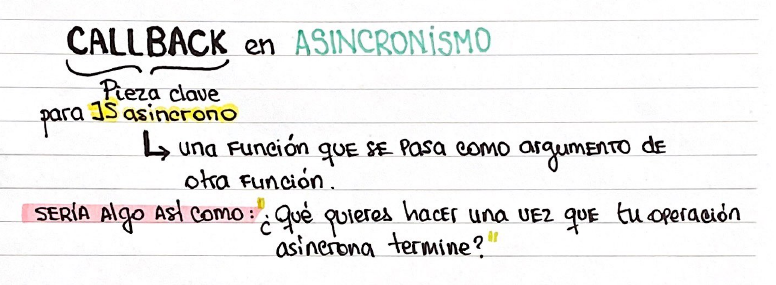 CALLBACK en ASINCRONISMO
Pieza clave
para JS asincrono
↳ una función que se pasa como argumento de
otra función.
SERÍA Algo Así como: "¿Qué quieres hacer una vez que tu operación
asincrona termine?"